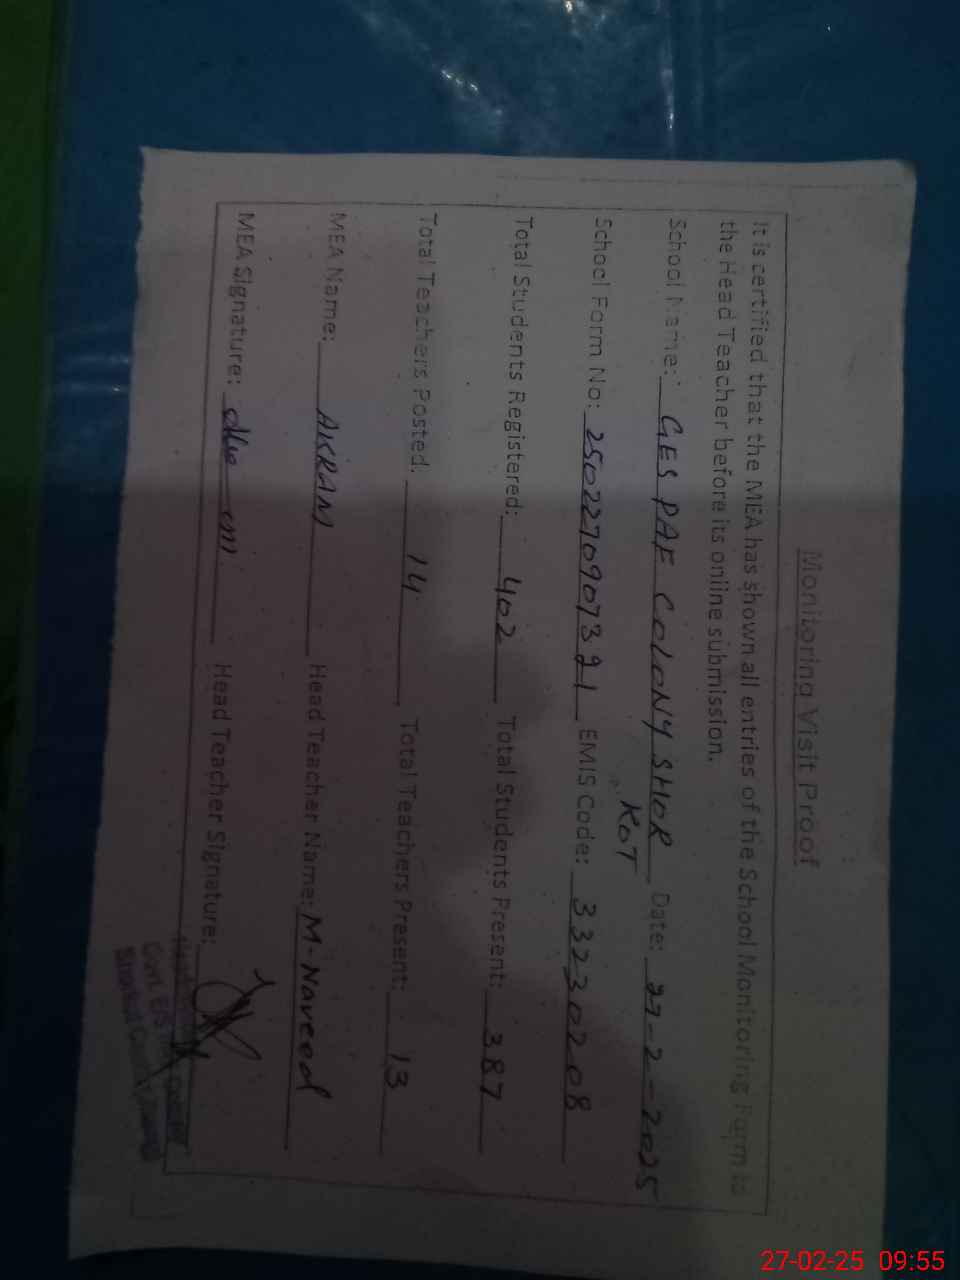 Monitoring Visit Proof
It is certified that the MEA has shown all entries of the School Monitoring Form to
the Head Teacher before its online submission.
School Name: GES PAF COLONY SHOR KOT Date: 27-2-2025
School Form No: 2502270907321 EMIS Code: 33230208
Total Students Registered: 402 Total Students Present: 387
Total Teachers Posted: 14 Total Teachers Present: 13
MEA Name: AKRAM Head Teacher Name: M-Naveed
MEA Signature: Head Teacher Signature:
Govt. E/S
27-02-25 09:55